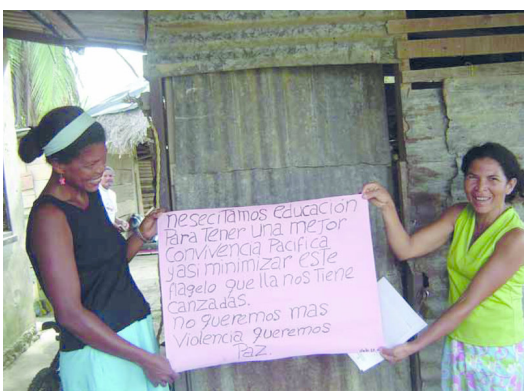 nesecitamos educación
Para Tener una mejor
convivencia Pacifica
y asi minimizar este
flagelo que lla nos Tiene
canzadas.
no queremos mas
violencia queremos
Paz.